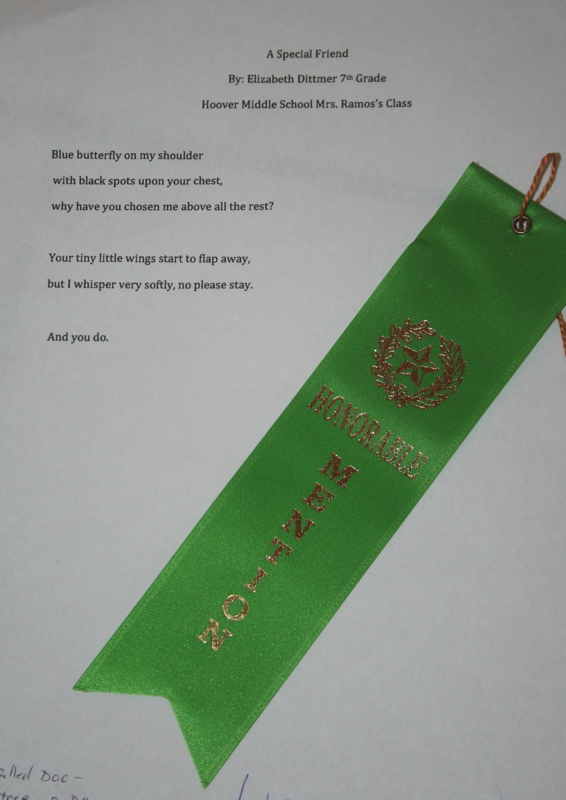 A Special Friend
By: Elizabeth Dittmer 7th Grade
Hoover Middle School Mrs. Ramos's Class
Blue butterfly on my shoulder
with black spots upon your chest,
why have you chosen me above all the rest?
Your tiny little wings start to flap away,
but I whisper very softly, no please stay.
And you do.
HONORABLE
MENTION
Doc –